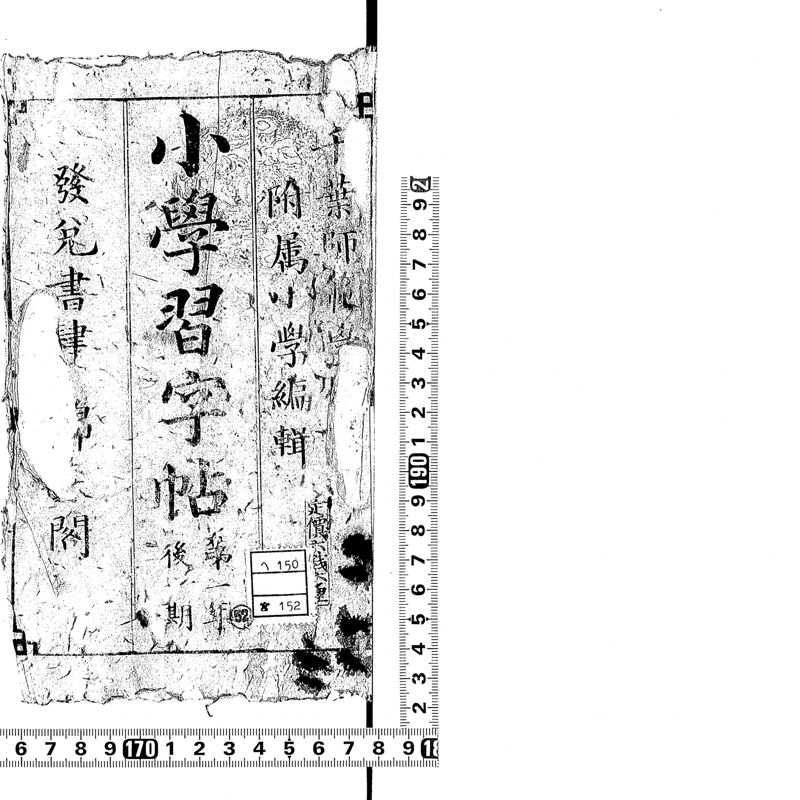 千葉師範學
附属小學編輯
小學習字帖
第一年
後期
定價六銭五厘
發兌書肆 錦 閣
へ 150
152
52
2 3 4 5 6 7 8 9 190 1 2 3 4 5 6 7 8 9
6 7 8 9 170 1 2 3 4 5 6 7 8 9 18